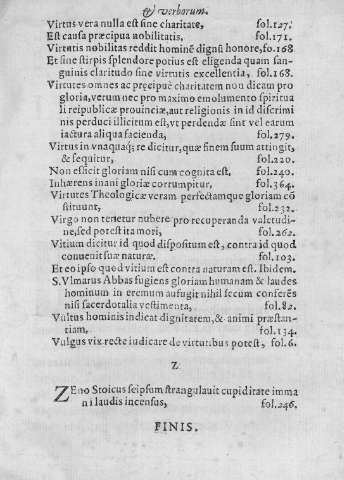 & verborum.
Virtus vera nulla est sine charitate, fol.127.
Est causa præcipua nobilitatis, fol.171.
Virtutis nobilitas reddit hominẽ dignũ honore, fo.168
Et sine stirpis splendore potius est eligenda quam san-
guinis claritudo sine virtutis excellentia, fol.168.
Virtutes omnes ac precipuè charitatem non dicam pro
gloria, verum nec pro maximo emolumento spiritua
li reipublicæ prouinciæ, aut religionis in id discrimi
nis perduci illicitum est, vt perdendæ sint vel earum
iactura aliqua facienda, fol.279.
Virtus in vnaquaq; re dicitur, quæ finem suum attingit,
& sequitur, fol.220.
Non efficit gloriam nisi cum cognita est, fol.240.
Inhærens inani gloriæ corrumpitur, fol.364.
Virtutes Theologicæ veram perfectamque gloriam cõ
stituunt, fol.232.
Virgo non tenetur nubere pro recuperanda valetudi-
ne, sed potest ita mori, fol.262.
Vitium dicitur id quod dispositum est, contra id quod
conuenit suæ naturæ. fol.103.
Et eo ipso quod vitium est contra naturam est. Ibidem.
S. Vlmarus Abbas fugiens gloriam humanam & laudes
hominum in eremum aufugit nihil secum conferẽs
nisi sacerdotalia vestimenta, fol.82.
Vultus hominis indicat dignitatem, & animi præstan-
tiam, fol.134.
Vulgus vix recte iudicare de virtutibus potest, fol.6.
Z
ZEno Stoicus seipsum strangulauit cupiditate imma
ni laudis incensus, fol.246.
FINIS.